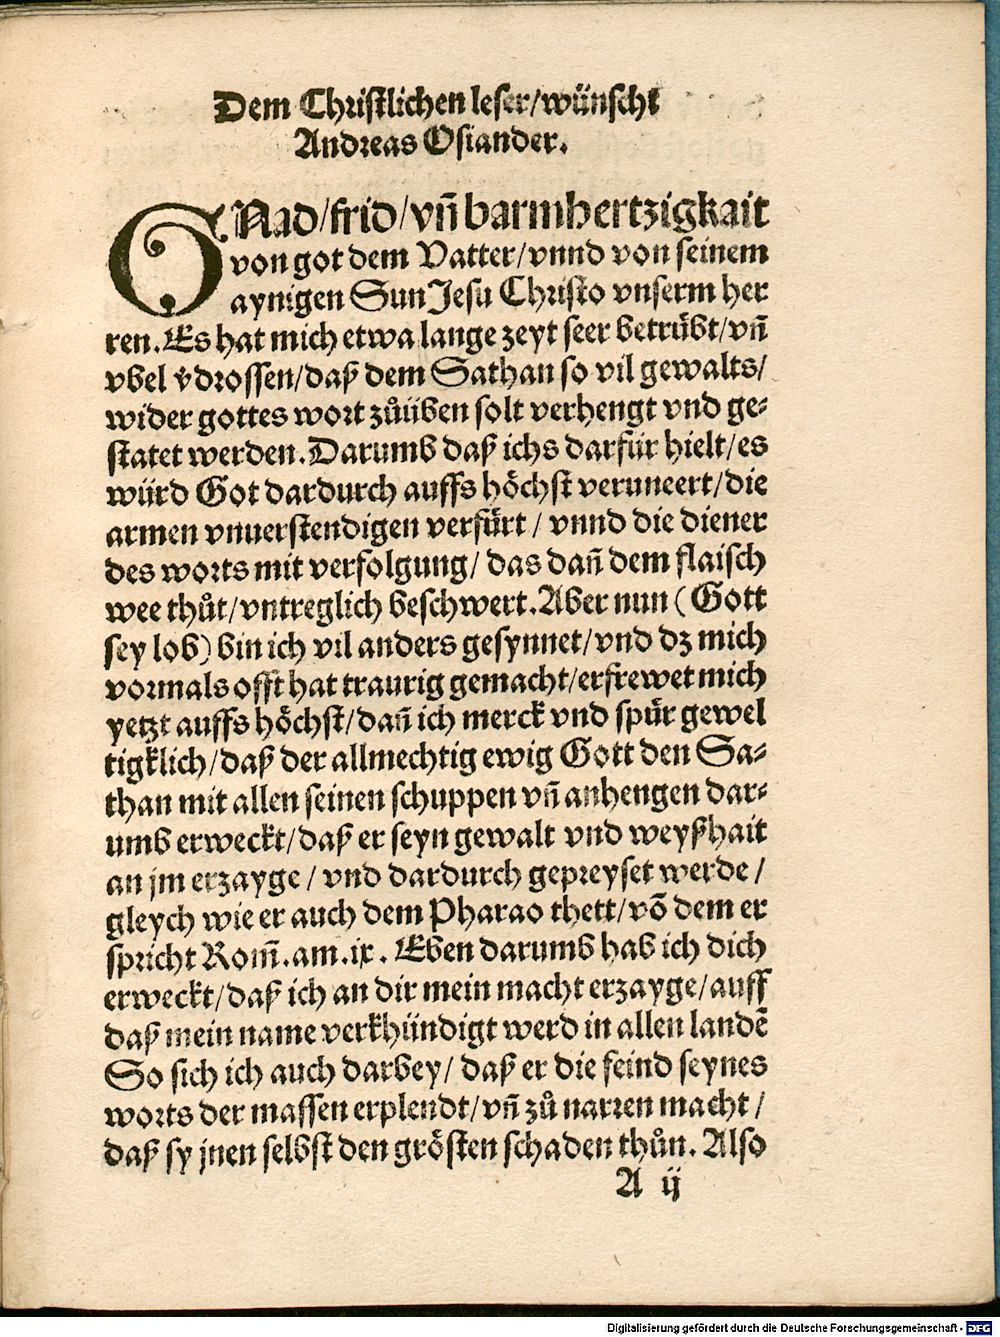 Dem Christlichen leser/wünscht
Andreas Osiander.
GNad/frid/vñ barmhertzigkait
von got dem Vatter/vnnd von seinem
aynigen Sun Jesu Christo vnserm her
ren. Es hat mich etwa lange zeyt seer betrübt/vñ
vbel v̈drossen/daß dem Sathan so vil gewalts/
wider gottes wort zůüben solt verhengt vnd ge⸗
statet werden. Darumb daß ichs darfür hielt/es
würd Got dardurch auffs höchst veruneert/die
armen vnuerstendigen verfürt / vnnd die diener
des worts mit verfolgung/ das dañ dem flaisch
wee thůt/vntreglich beschwert. Aber nun (Gott
sey lob) bin ich vil anders gesynnet/vnd dz mich
vormals offt hat traurig gemacht/erfrewet mich
yetzt auffs höchst/dañ ich merck vnd spür gewel
tigklich/daß der allmechtig ewig Gott den Sa⸗
than mit allen seinen schuppen vñ anhengen dar⸗
umb erweckt/daß er seyn gewalt vnd weyßhait
an jm erzayge / vnd dardurch gepreyset werde /
gleych wie er auch dem Pharao thett/võ dem er
spricht Rom̃. am. ix. Eben darumb hab ich dich
erweckt/daß ich an dir mein macht erzayge/auff
daß mein name verkhündigt werd in allen landẽ
So sich ich auch darbey/ daß er die feind seynes
worts der massen erplendt/vñ zů narren macht /
daß sy jnen selbst den grösten schaden thůn. Also
A ij
Digitalisierung gefördert durch die Deutsche Forschungsgemeinschaft - DFG